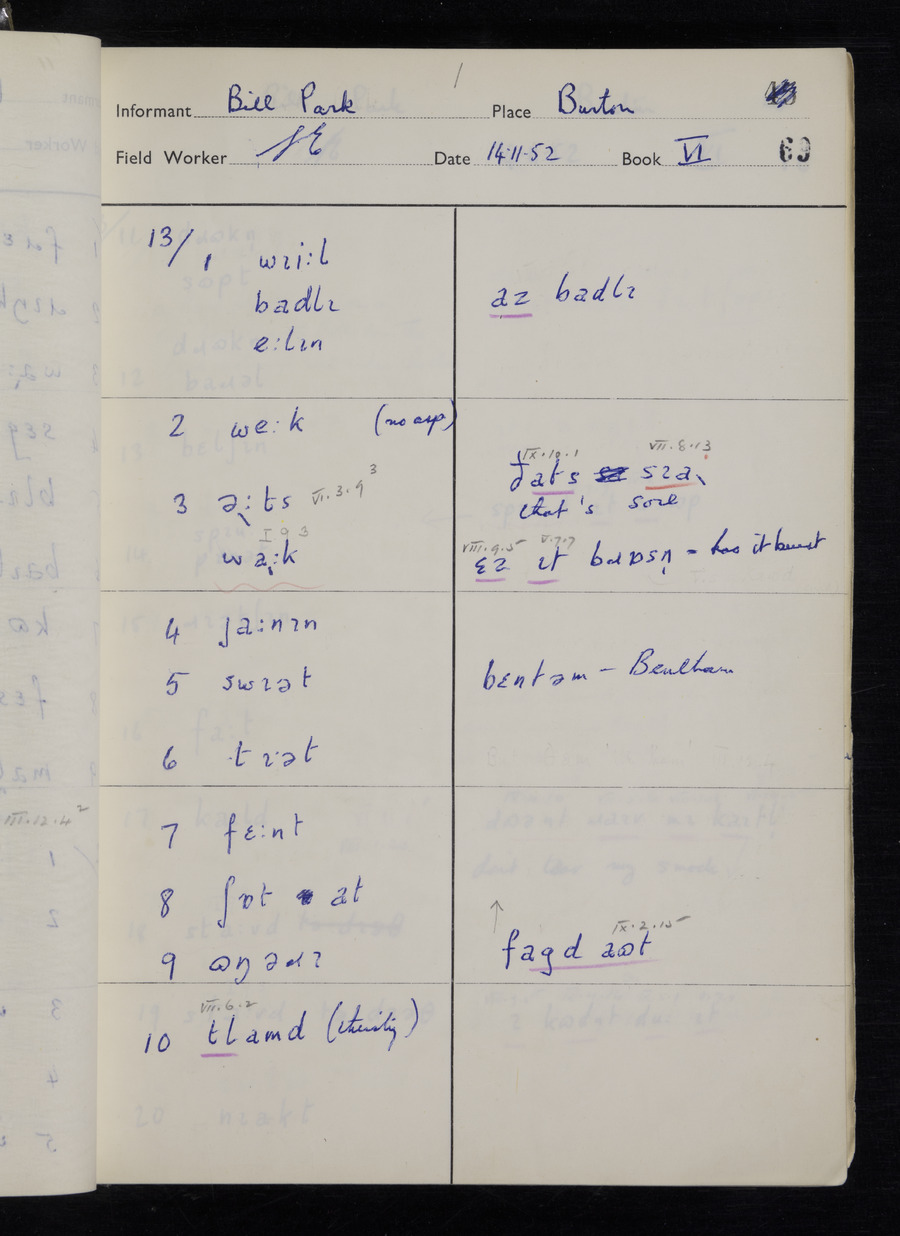 Informant Bill Park Place Burton
Field Worker SE Date 14·11·52 Book VI 69
13/1 wɹi:l
badlɪ
e:lɪn
az badlɪ
2 we:k (no asp.)
3 ə:ts VI.3.9 3
I 9 3
wa:k
IX.10.1 VII.8.13
ðats sɪə
that's sore
VIII.9.5 V.7.7
ɛz ɪt bɹʊsn̩ = has it burst
4 ʃa:nɪn
5 swɪət
6 tɪət
bɛntəm – Bentham
7 fɛ:nt
8 ʃɒt at
9 ɷŋəɹɪ
↑ IX.2.15
fagd aɷt
VII.6.2
10 tlamd (thirsty)
VIII.12.4 2